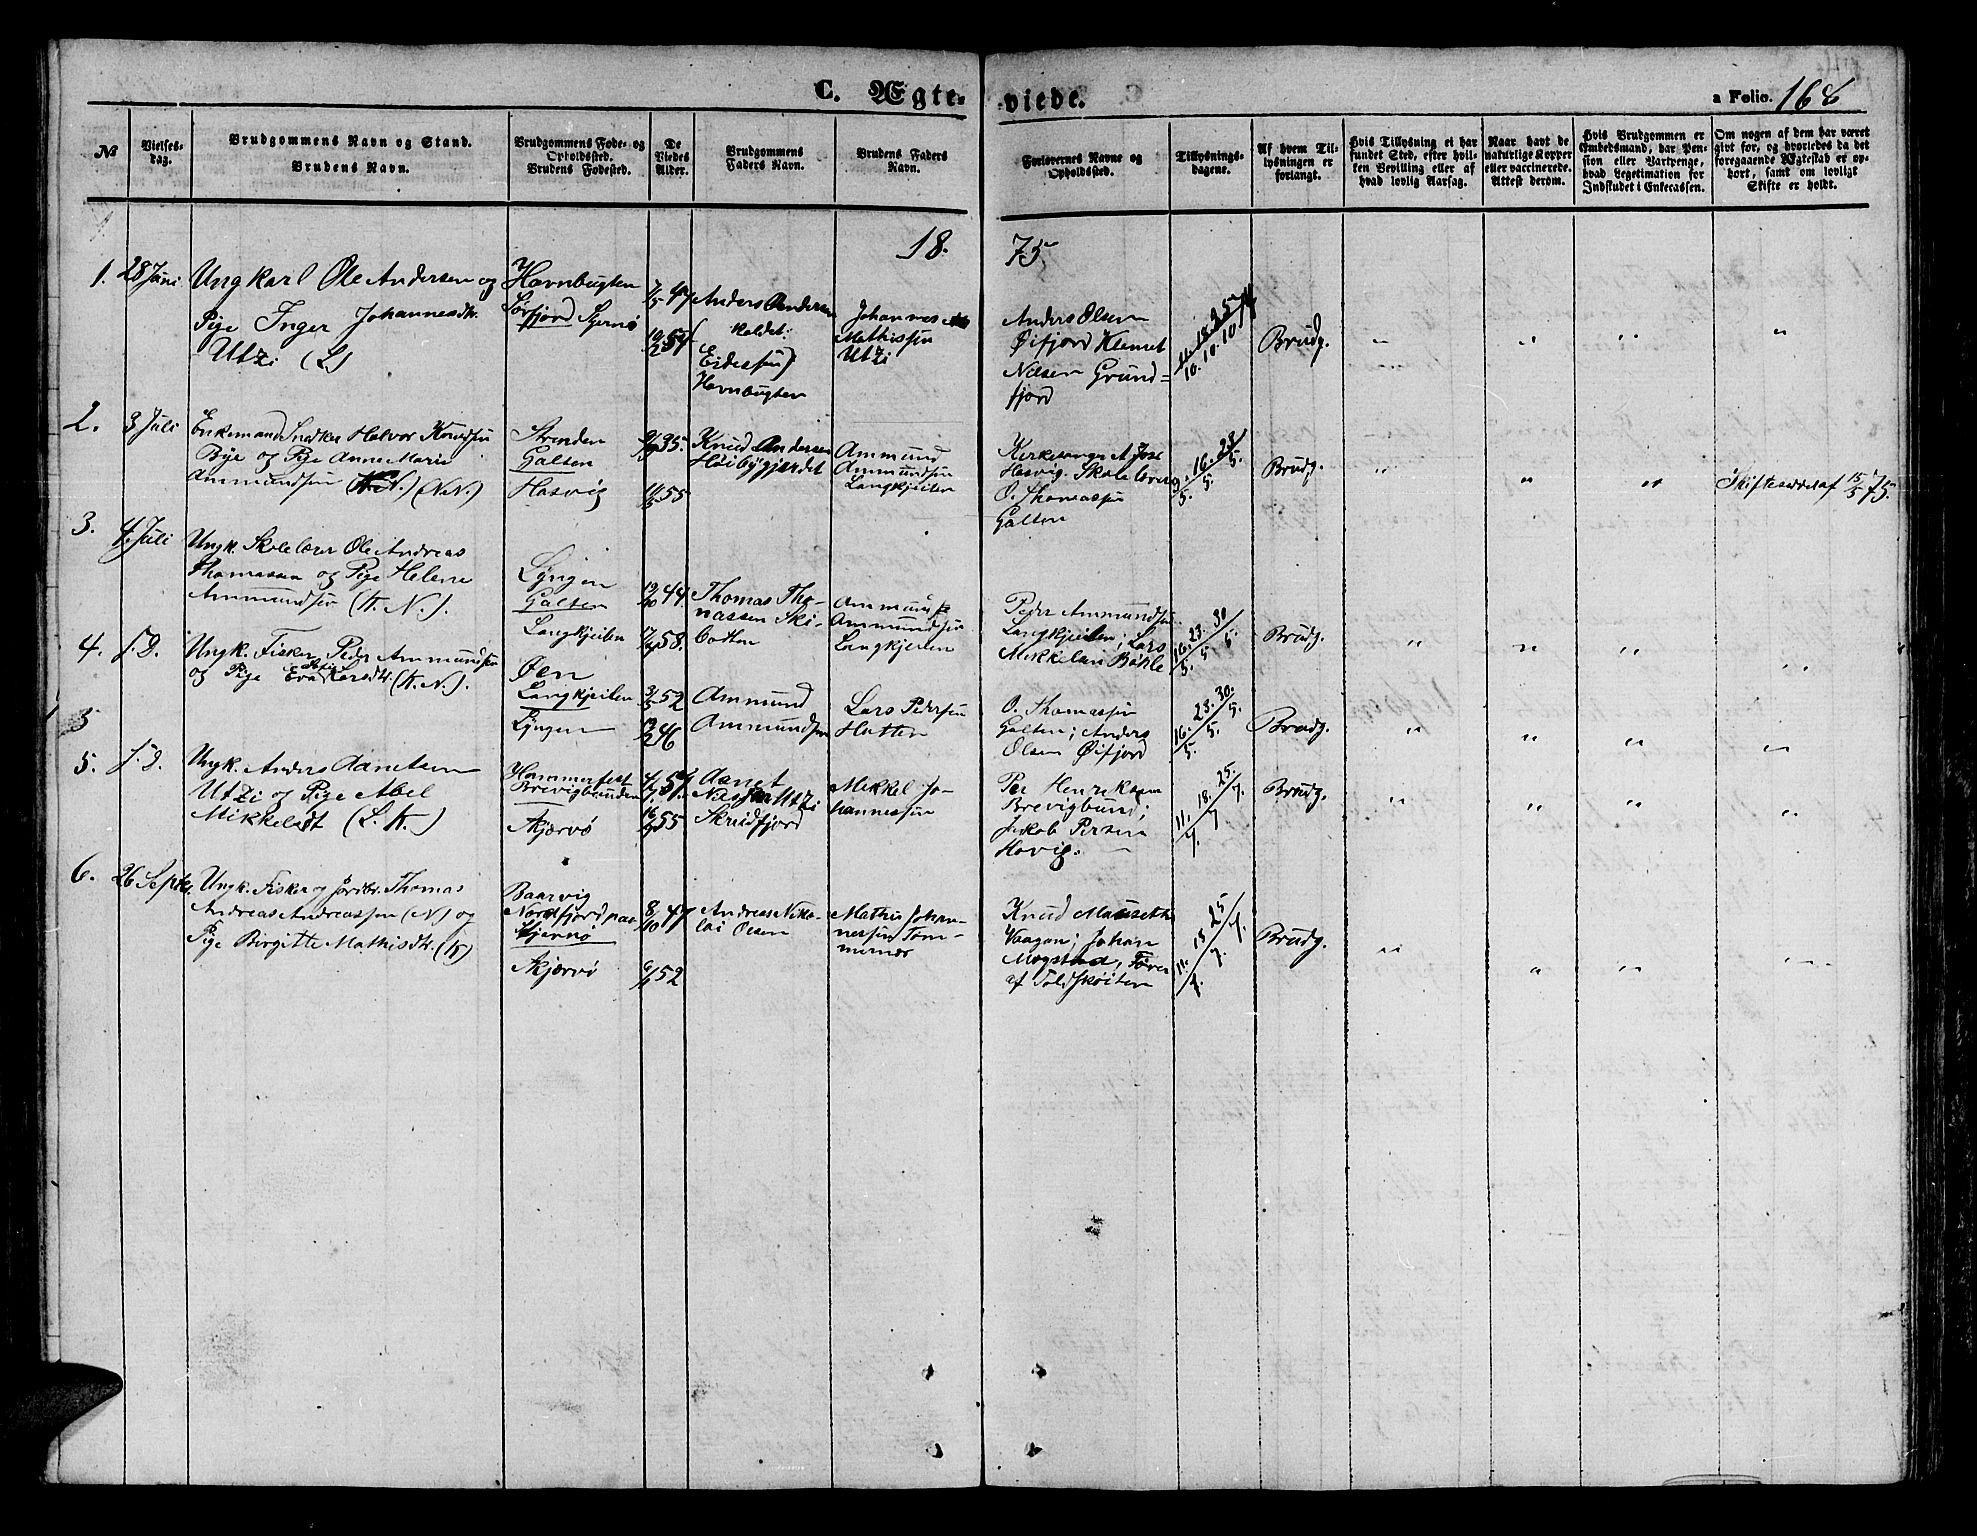 C. Ægte-
viede.
a Folio. 168
№
Vielses-
dag.
Brudgommens Navn og Stand.
Brudens Navn.
Brudgommens Føde- og
Opholdssted.
Brudens Fødested.
De
Viedes
Alder.
Brudgommens
Faders Navn.
Brudens Faders
Navn.
Forlovernes Navne og
Opholdssted.
Tillysnings-
dagene.
Af hvem Til-
lysningen er
forlangt.
Hvis Tillysning ei har
fundet Sted, efter hvil-
ken Bevilling eller af
hvad lovlig Aarsag.
Naar havt de
naturlige Kopper
eller vaccinerede.
Attest derom.
Hvis Brudgommen er
Embedsmand, har Pen-
sion eller Vartpenge,
hvad Legetimation for
Indskudet i Enkecassen.
Om nogen af dem har været
givt for, og hvorledes da det
foregaaende Ægteskab er op-
hørt, samt om lovligt
Skifte er holdt.
18.
75
1. 28 Juni
Ungkarl Ole Andersen og
Pige Inger Johannesdtr.
Utzi (L)
Havnbugten
Sørfjord Stjernø
7/5 47
10/2 54
Anders Andersen
(kaldet:
Eidessen)
Havnbugten
Johannes
Mathissen
Utzi
Anders Olsen
Øifjord Klemet
Nilsen Grund=
fjord
10. 10. 10
Brudg.
2. 3 Juli
Enkemand Snedker Halvor Knudsen
Bye og Pige Anne Marie
Ammundsen (N.N.)
Strinden
Galten
Hasvig
35.
55
Knud Andersen
Høibygjerdet
Ammund
Ammundsen
Langkjeilen
Kirkesanger A. Jose
Hasvig. Skolelærer
O. Thomassen
Galten
9. 16. 23
5. 5. 5.
Brudg.
Skifteseddel af 15/5 75.
3. 4 Juli
Ungk. Skolelærer Ole Andreas
Thomassen og Pige Helene
Ammundsen (K. N.).
Lyngen
Galten
Langkjeilen
44.
58.
Thomas Tho-
massen Ski-
botten
Ammund
Ammundsen
Langkjeilen
Peder Ammundsen
Langkjeilen; Lars
Mikkelsen Bøhle
16. 23. 30
5. 5 5.
Brudg.
4. s. D.
Ungk. Fisker Peder Ammundsen
og Pige Eva Larsdtr. (K. N.).
Øen
Langkjeilen
Lyngen
3/5 52
46
Ammund
Ammundsen
Lars Pedersen
Hatten
O. Thomassen
Galten; Anders
Olsen Øifjord
16. 23. 30.
5. 5. 5.
Brudg.
5
5. s. D.
Ungk. Anders Aanetsen
Utzi og Pige Abel
Mikkelsdt (L. K.)
Hammerfest
Brevigbunden
Skjærvø
54.
55
Aanet
Nilssen Utzi
Skreifjord
Mikkel Jo-
hannessen
Per Henriksen
Brevigbund;
Jakob Persen
Havig.
11. 18. 25.
7. 7 7.
Brudg.
6. 26 Septbr.
Ungk. Fisker og Jordbr. Thomas
Andreas Andreassen (N) og
Pige Birgitte Mathisdtr. (K)
Baarvig
Nordfjord paa
Stjernø
Skjærvø
8/10 47
52
Andreas Niko-
lai Olsen
Mathis Johan-
nessen Tom-
mernæs
Knud Mauseth
Vaagan; Johan
Mogstad, Fører
af Toldskøiten
11. 18 25
7. 7. 7.
Brudg.